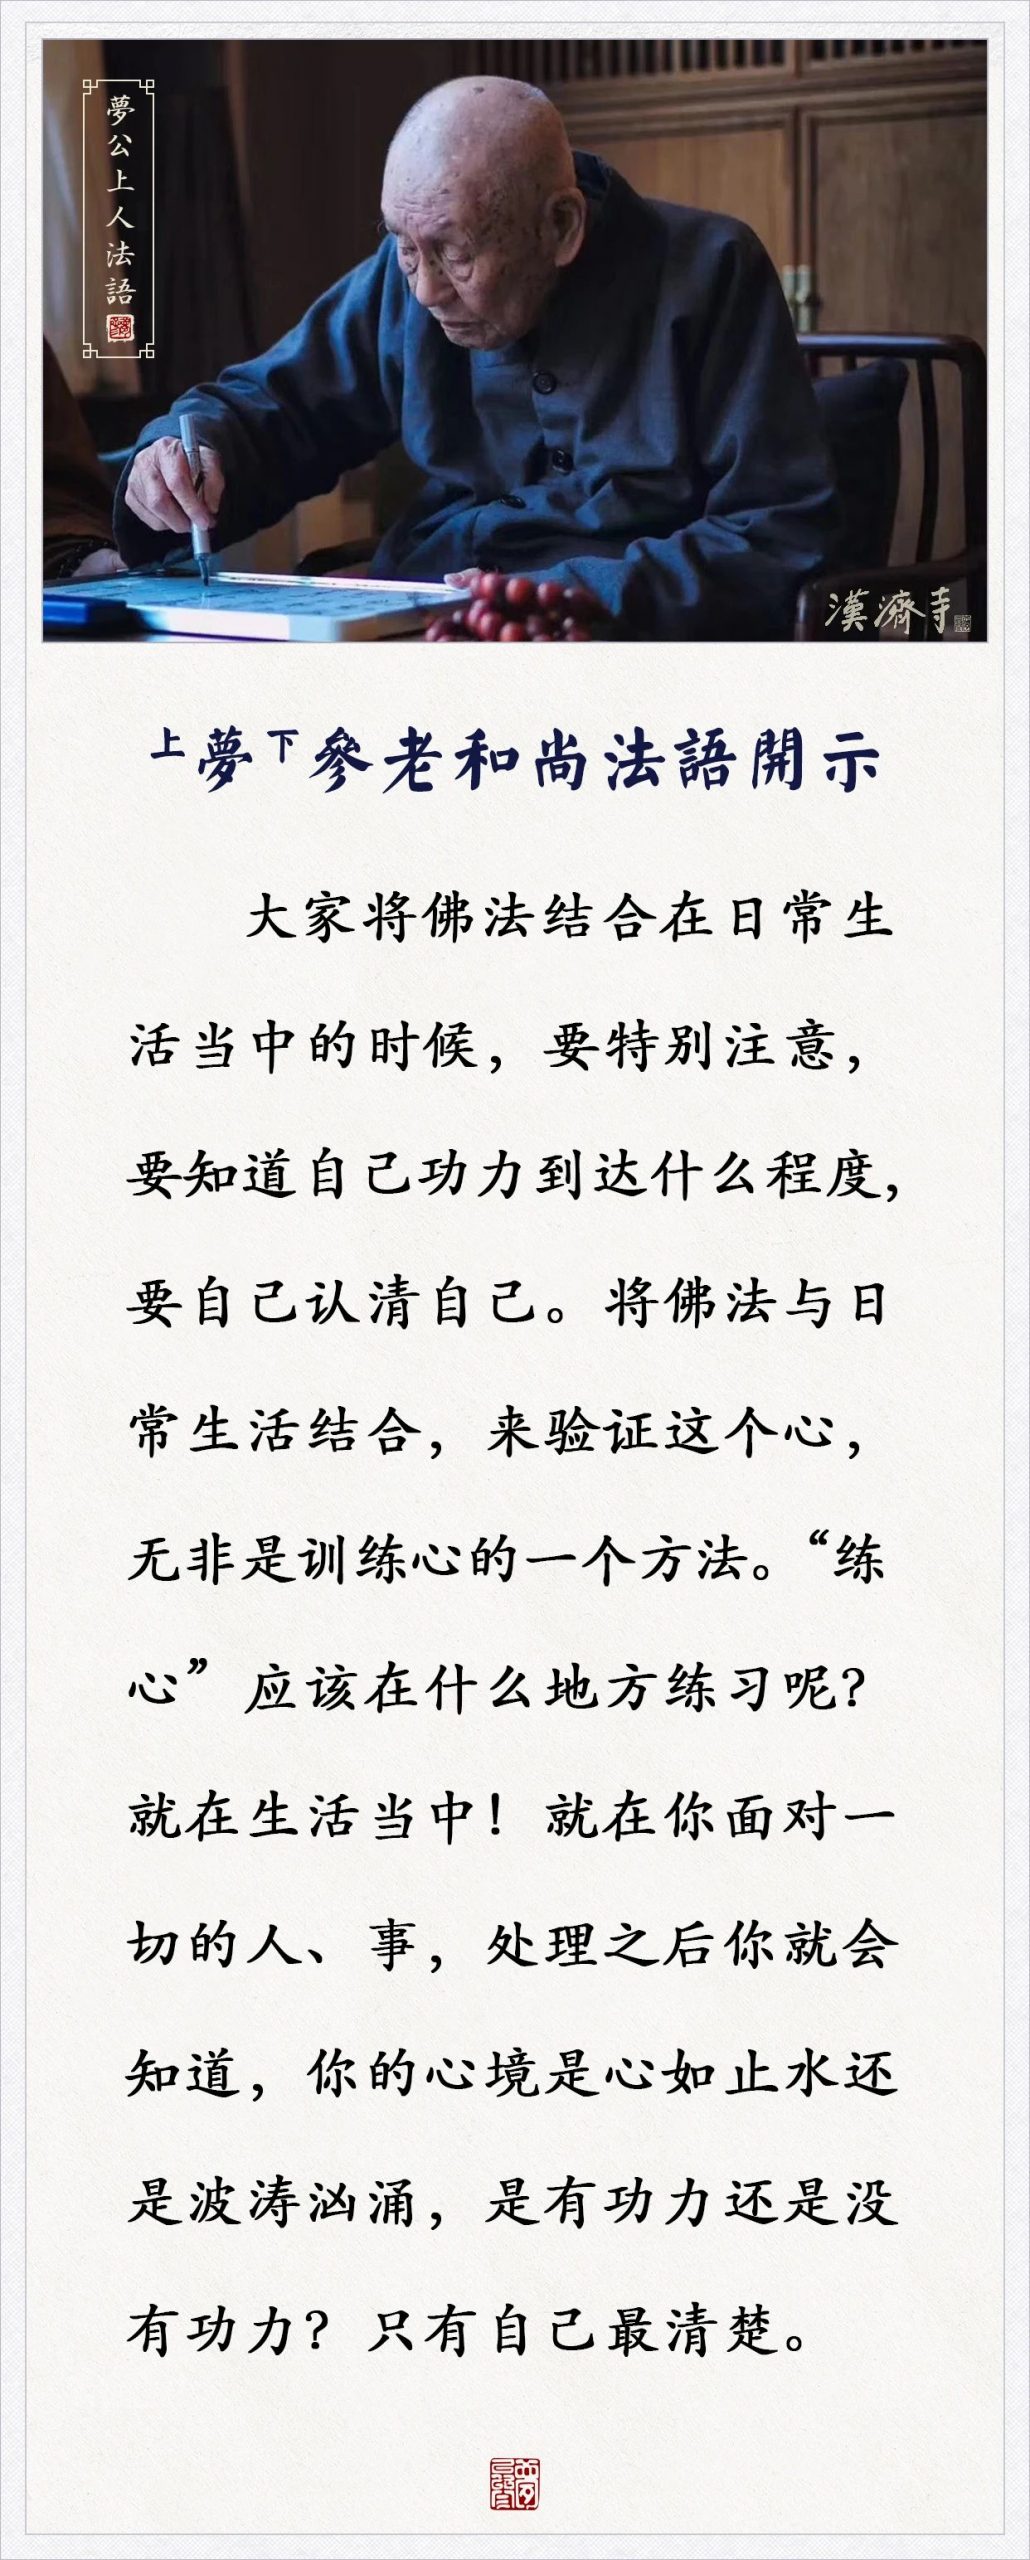 夢公上人法語
漢濟寺
上夢下參老和尚法語開示
大家将佛法结合在日常生
活当中的时候，要特别注意，
要知道自己功力到达什么程度，
要自己认清自己。将佛法与日
常生活结合，来验证这个心，
无非是训练心的一个方法。“练
心”应该在什么地方练习呢？
就在生活当中！就在你面对一
切的人、事，处理之后你就会
知道，你的心境是心如止水还
是波涛汹涌，是有功力还是没
有功力？只有自己最清楚。